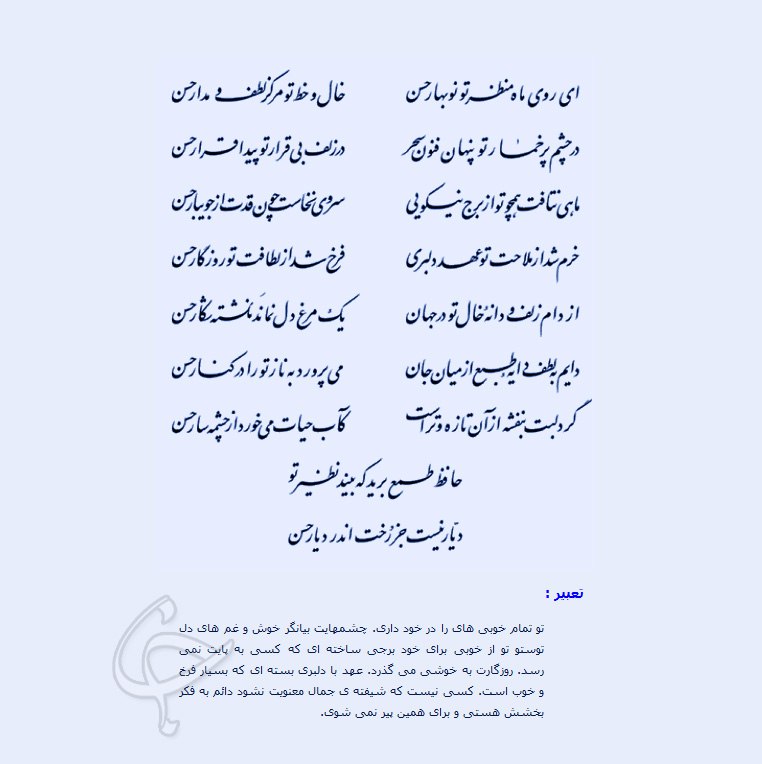 ای روی ماه منظر تو نوبهار حسن
خال و خط تو مرکز لطف و مدار حسن
در چشم پرخمار تو پنهان فنون سحر
در زلف بی قرار تو پیدا قرار حسن
ماهی نتافت همچو تو از برج نیکویی
سروی نخاست چون قدت از جویبار حسن
خرم شد از ملاحت تو عهد دلبری
فرخ شد از لطافت تو روزگار حسن
از دام زلف و دانهٔ خال تو در جهان
یک مرغ دل نماند نگشته شکار حسن
دایم به لطف دایهٔ طبع از میان جان
می پرورد به ناز تو را در کنار حسن
گرد لبت بنفشه از آن تازه و تر است
کآب حیات می خورد از چشمه سار حسن
حافظ طمع برید که بیند نظیر تو
دیّار نیست جز رخت اندر دیار حسن
تعبیر :
تو تمام خوبی های را در خود داری. چشمهایت بیانگر خوش و غم های دل
توستو تو از خوبی برای خود برجی ساخته ای که کسی به پایت نمی
رسد. روزگارت به خوشی می گذرد. عهد با دلبری بسته ای که بسیار فرخ
و خوب است. کسی نیست که شیفته ی جمال معنویت نشود دائم به فکر
بخشش هستی و برای همین پیر نمی شوی.